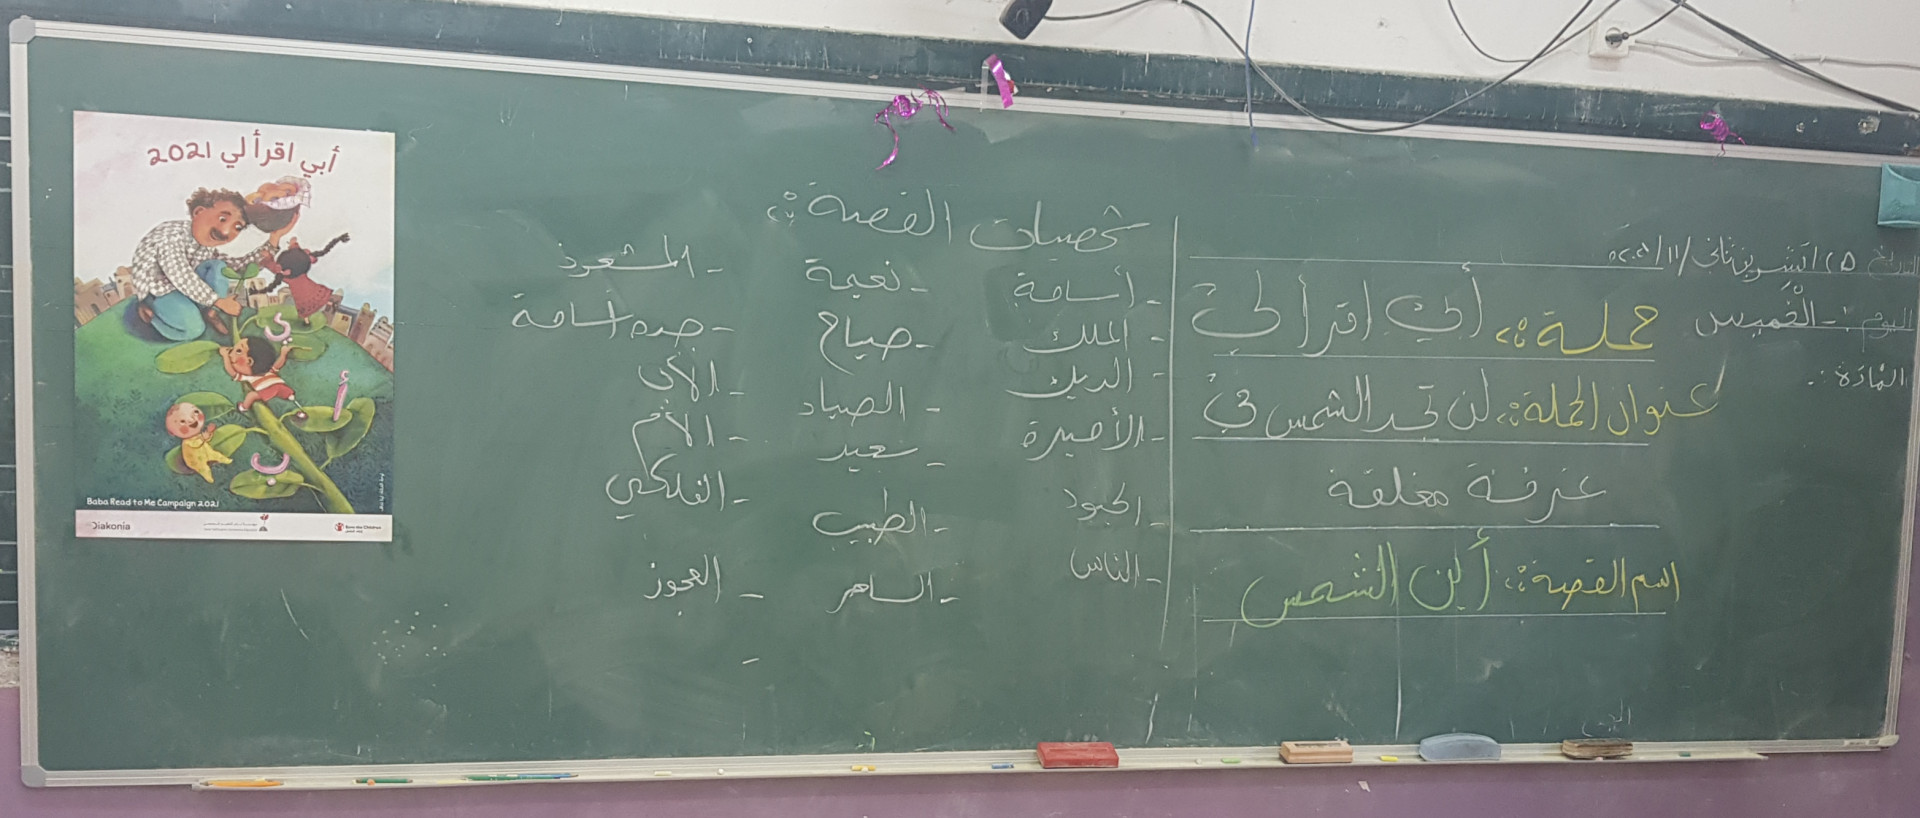 التاريخ ٢٥ / تشرين ثاني / ١١ / ٢٠٢١
اليوم :- الْخَميس
المادة :-
حملة :: أبي اقرأ لي
عنوان الحملة :: لن تجد الشمس في
غرفة مغلقة
اسم القصة :: أين الشمس
شخصيات القصة ::
- أسامة
- الملك
- الديك
- الأميرة
- الجنود
- الناس
- نعيمة
- صياح
- الصياد
- سعيد
- الطبيب
- الساحر
- المشعوذ
- جده أسامة
- الأب
- الأم
- الفلكي
- العجوز
أبي اقرأ لي 2021
ي
أ
ب
Baba Read to Me Campaign 2021
Diakonia
Save the Children